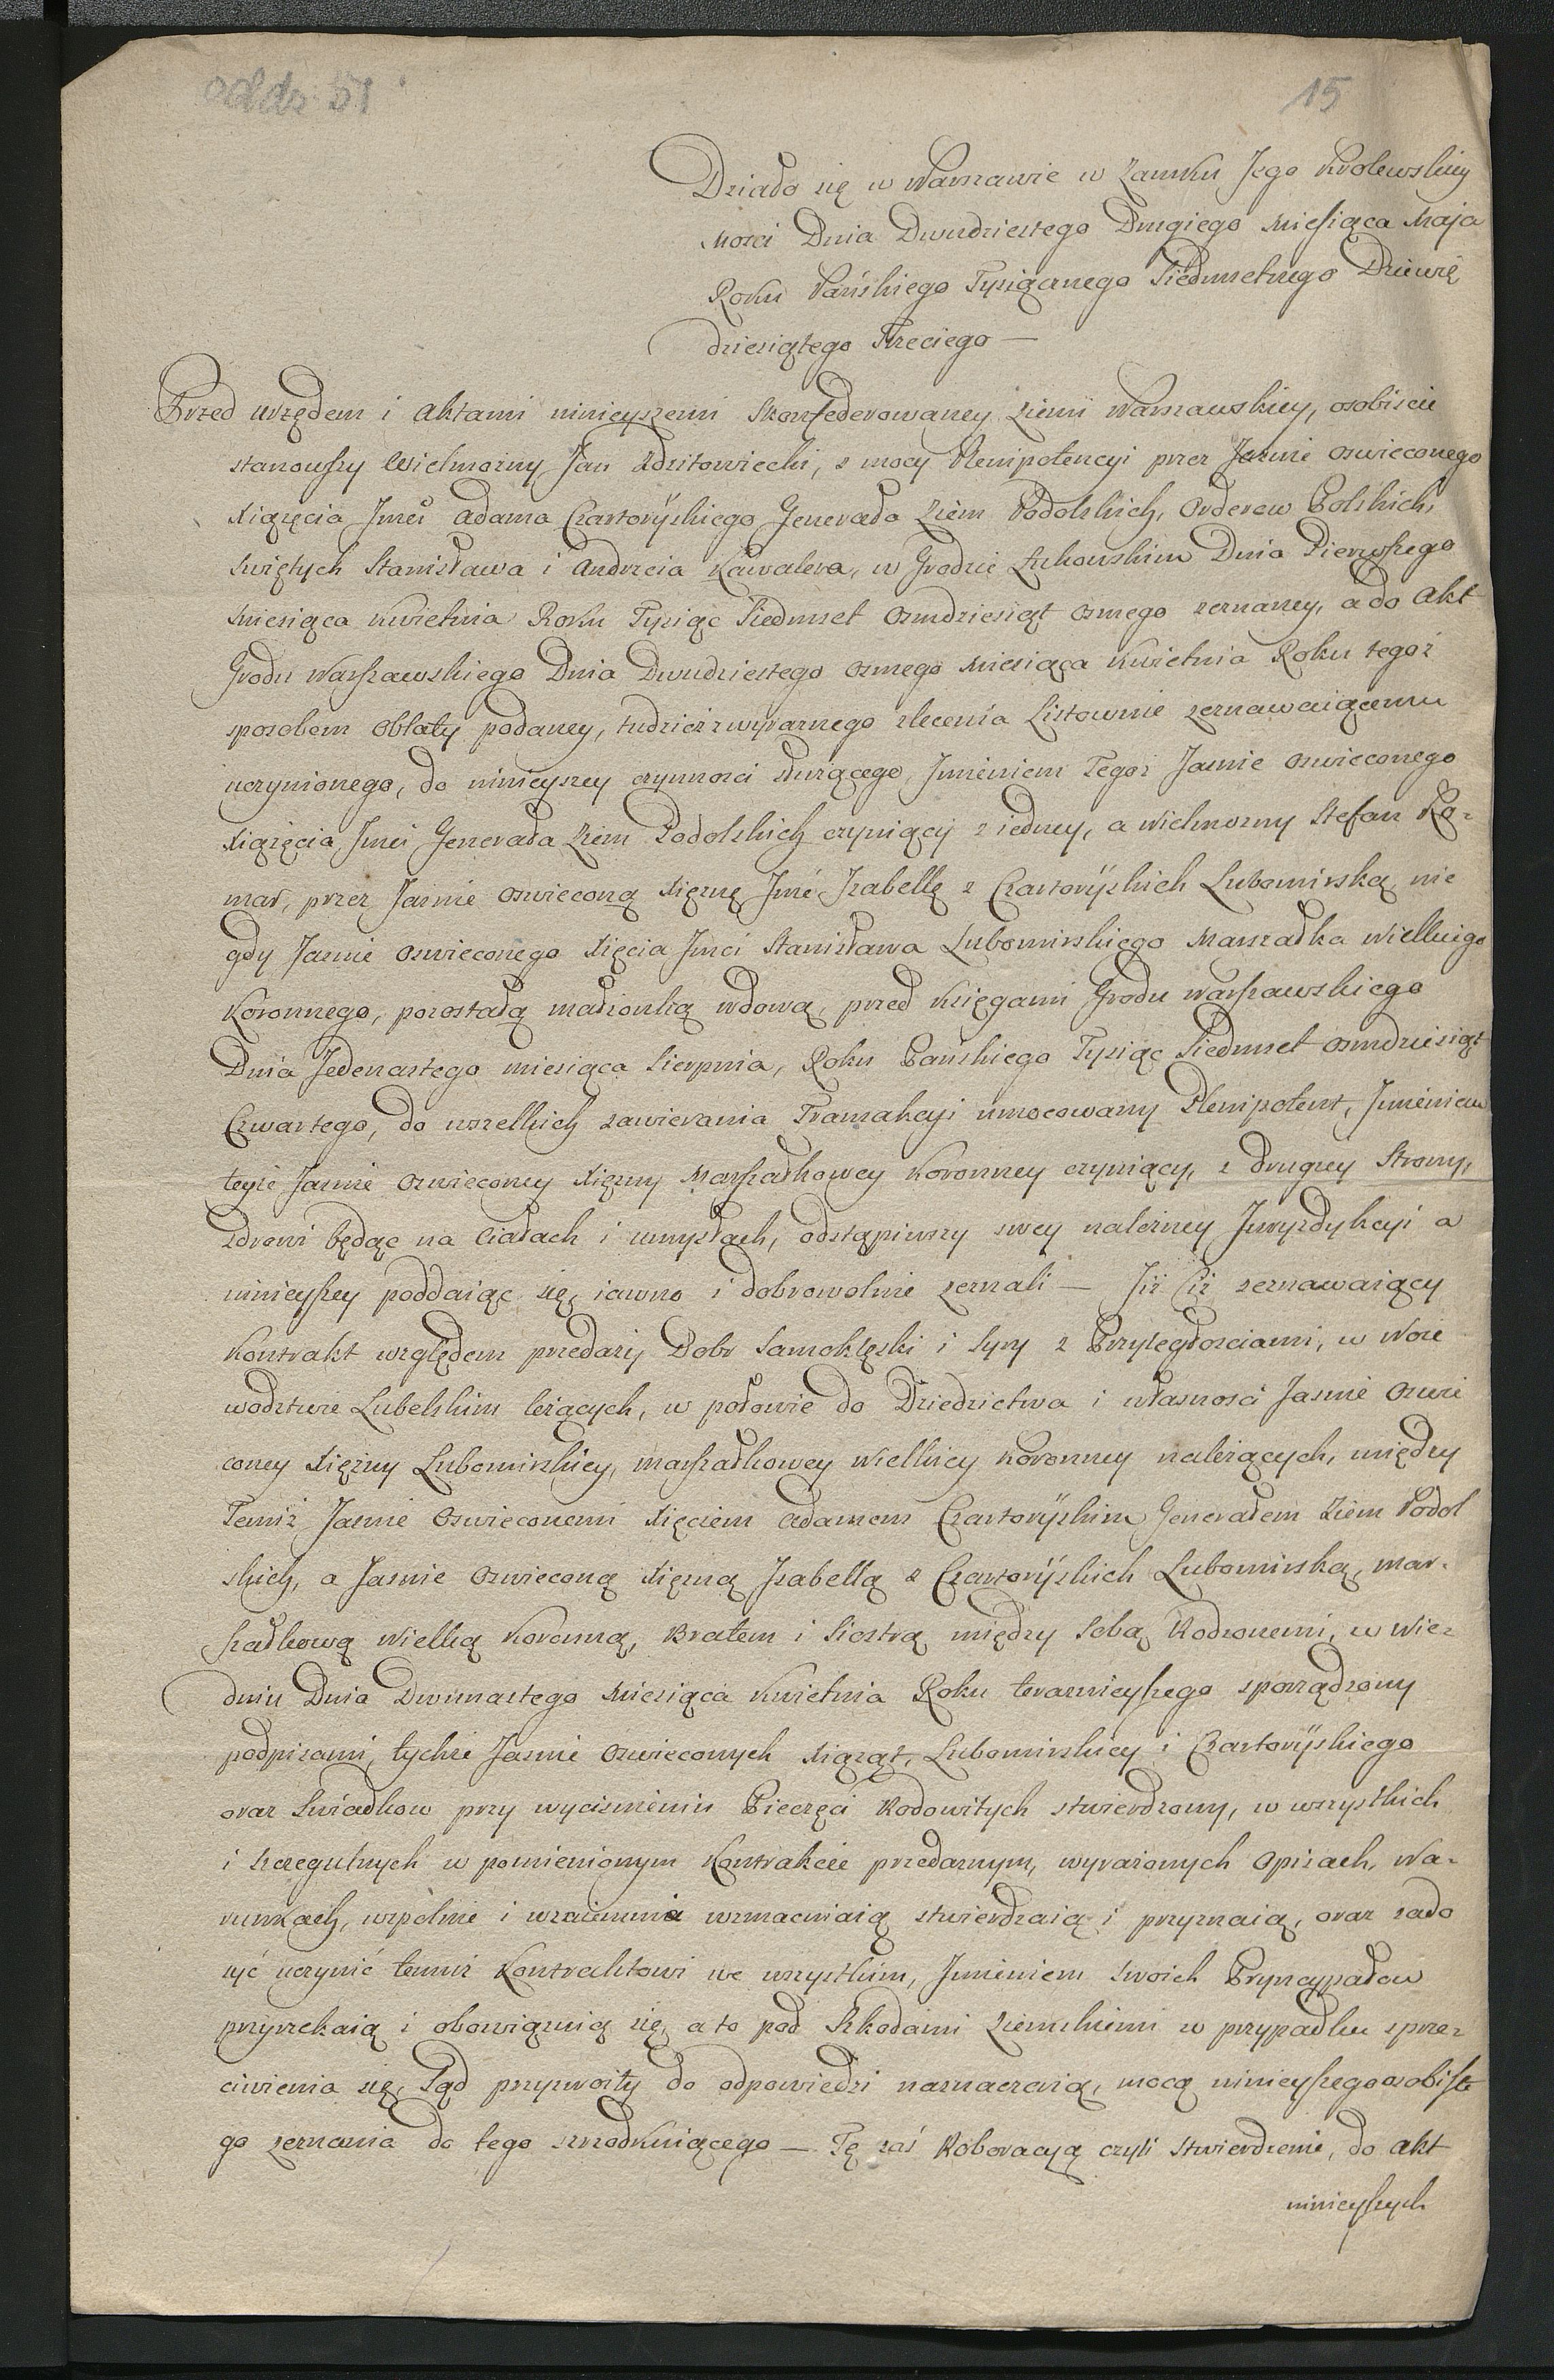 oddz 51
15
Działo się w Warszawie w Zamku Jego Krolewskiey
Mości Dnia Dwudziestego Drugiego Miesiąca Maja
Roku Pańskiego Tysiącznego Siedmsetnego Dziewię
dziesiątego Trzeciego —
Przed urzędem i Aktami ninieyszemi Skonfederowaney Ziemi Warszawskiey, osobiscie
stanowszy Wielmożny Jan Zdzitowiecki, z mocy Plenipotencyi przez Jasnie Oswieconego
Xiążęcia Jmci Adama Czartoryskiego Generała Ziem Podolskich, Orderow Polskich,
Swiętych Stanisława i Andrzeia Kawalera, w Grodzie Łukowskim Dnia Pierwszego
Miesiąca Kwietnia Roku Tysiąc Siedmset Osmdziesiąt Osmego zeznaney, a do Akt
Grodu Warszawskiego Dnia Dwudziestego Osmego Miesiąca Kwietnia Roku tegoż
sposobem Oblaty podaney, tudzież z wyraznego zlecenia Listownie zeznawaiącemu
uczynionego, do ninieyszey czynnosci służącego, Jmieniem Tegoż Jasnie Oswieconego
Xiążęcia Jmci Generała Ziem Podolskich czyniący z iedney, a Wielmozny Stefan Ko-
mar, przez Jasnie Oswieconą Xiężnę Jmć Jzabellę z Czartoryskich Lubomirską nie
gdy Jasnie Oswieconego Xięcia Jmci Stanisława Lubomirskiego Marszałka Wielkiego
Koronnego, pozostałą małżonkę wdowę, przed Księgami Grodu Warszawskiego
Dnia Jedenastego miesiąca Sierpnia, Roku Pańskiego Tysiąc Siedmset Osmdziesiąt
Czwartego, do wszelkich zawierania Tranzakcyi umocowany Plenipotent, Jmieniem
teyże Jasnie Oswieconey Xiężny Marszałkowey Koronney czyniący, z drugiey Strony,
zdrowi będąc na Ciałach i umysłach, odstąpiwszy swey należney Juryzdykcyi a
ninieyszey poddaiąc się, iawno i dobrowolnie zeznali — Jiż Ciż zeznawaiący
Kontrakt względem przedaży Dobr Samoklęski i Syry z Przyległosciami, w Woie
wodztwie Lubelskim leżących, w połowie do Dziedzictwa i własności Jasnie Oswie
coney Xiężny Lubomirskiey, Marszałkowey Wielkiey Koronney należących, między
Temiż Jasnie Oswieconemi Xięciem Adamem Czartoryskim Generałem Ziem Podol
skich, a Jasnie Oswieconą Xiężną Jzabellą z Czartoryskich Lubomirską, Mar-
szałkową Wielką Koronną, Bratem i Siostrą między Sobą Rodzonemi, w Wie-
dniu Dnia Dwunastego Miesiąca Kwietnia Roku teraznieyszego sporządzony
podpisami tychże Jasnie Oswieconych Xiążąt, Lubomirskiey i Czartoryskiego
oraz Swiadkow przy wycisnieniu Pieczęci Rodowitych stwierdzony, w wszystkich
i szczegulnych w pomienionym Kontrakcie przedaznym, wyrażonych Opisach, Wa-
runkach, wspolnie i wzaiemnie wzmacniaią stwierdzaią i przyznaią, oraz zado
syć uczynić temuż Kontraktowi we wszystkim, Jmieniem swoich Pryncypałow
przyrzekaią i obowiązuią się, a to pod Szkodami Ziemskiemi w przypadku sprze-
ciwienia się, Sąd przyzwoity do odpowiedzi naznaczaią, mocą ninieyszego osobiste
go zeznania do tego szrodkuiącego — Tę zaś Roboracyą czyli stwierdzenie, do Akt
ninieyszych